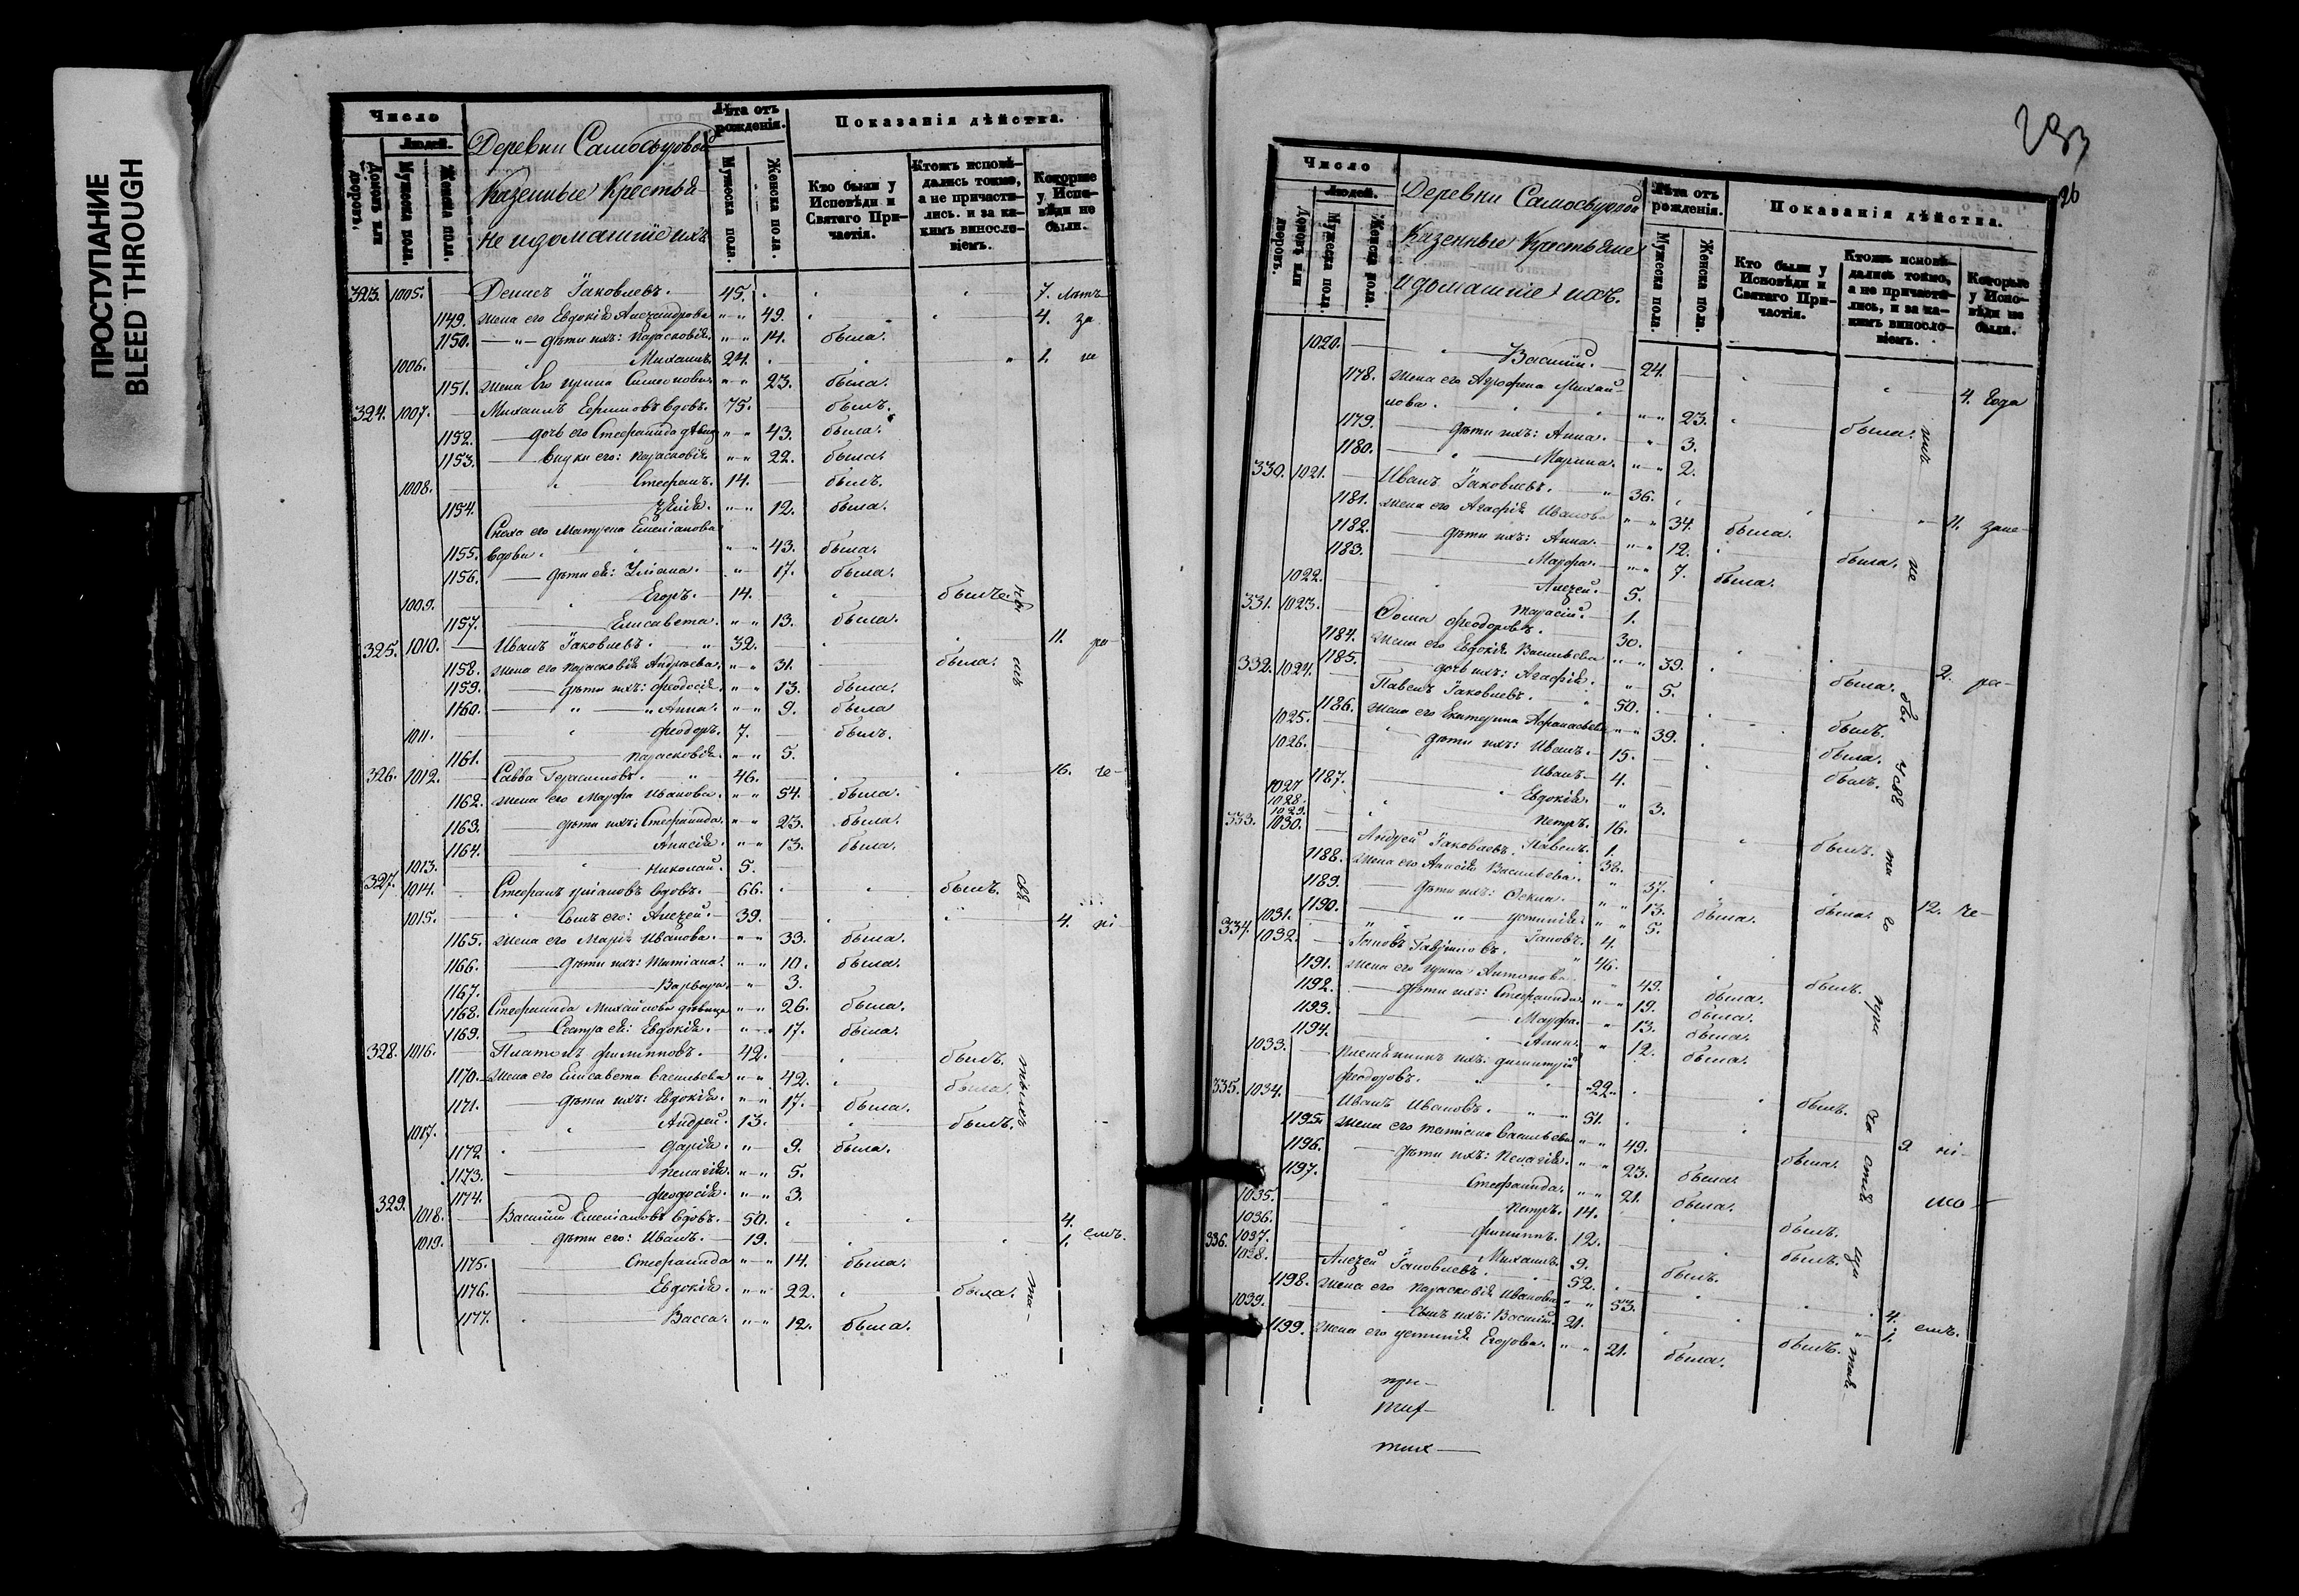 ПРОСТУПАНИЕ
BLEED THROUGH
Число
Людей.
Домовъ или дворовъ.
Мужеска пола.
Женска пола.
Деревни Самосудовой
Казенные Крестья-
не и домашніе ихъ
Лѣта отъ рожденія.
Мужеска пола.
Женска пола.
Показанія дѣйства.
Кто были у Исповѣди и Святаго Причастія.
Ктожъ исповѣдались токмо, а не причастились. и за какимъ винословіемъ.
Которые у Исповѣди не были.
323. 1005. Денисъ Іаковлевъ. 45. 7. лѣтъ
1149. жена его Евдокія Александрова 49. 4. за
1150. дѣти ихъ: Парасковія. 14. была.
1006. Михаилъ. 24. 1. не
1151. жена его Ирина Симеонова 23. была.
324. 1007. Михаилъ Ефимовъ вдовъ. 75. былъ.
1152. дочь его Стефанида дѣвица 43. была.
1153. внуки его: Парасковія. 22. была.
1008. Стефанъ. 14. былъ.
1154. Юлія. 12. была.
Сноха его Матрена Емельянова
1155. вдова. 43. была.
1156. дѣти ея: Ульяна. 17. была.
1009. Егоръ. 14. былъ.
1157. Елисавета. 13. была.
325. 1010. Иванъ Іаковлевъ. 32. 11. ра-
1158. жена его Парасковія Андреева. 31. была.
1159. дѣти ихъ: Феодосія. 13. была.
1160. Анна. 9. была
1011. Феодоръ. 7. былъ.
1161. Парасковія. 5.
326. 1012. Савва Герасимовъ. 46. 16. че-
1162. жена его Марфа Иванова. 54. была.
1163. дѣти ихъ: Стефанида. 23. была.
1164. Анисія. 13. была.
1013. Николай. 5.
327. 1014. Стефанъ вдовъ. 66. былъ.
1015. сынъ его: Алексѣй. 39. 4. ні-
1165. жена его Марія Иванова. 33. была.
1166. дѣти ихъ: Татіана. 10. была.
1167. Варвара. 3.
1168. Стефанида Михайлова дѣвица 26. была.
1169. Сестра ея: Евдокія. 17. была.
328. 1016. Платонъ Филипповъ. 42. былъ.
1170. жена его Елисавета Васильева 42. была.
1171. дѣти ихъ: Евдокія. 17. была.
1017. Андрей. 13. былъ.
1172 Дарія. 9. была.
1173. Пелагія. 5.
1174. Феодосія. 3.
329. 1018. Василій Емельяновъ вдовъ. 50. 4.
1019. дѣти его: Иванъ. 19. 1. емъ.
1175. Стефанида 14. была.
1176. Евдокія. 22. была.
1177. Васса. 12. была.
26
Число
Людей.
Домовъ или дворовъ.
Мужеска пола.
Женска пола.
Деревни Самосудовой
Казенные Крестьяне
и домашніе ихъ.
Лѣта отъ рожденія.
Мужеска пола.
Женска пола.
Показанія дѣйства.
Кто были у Исповѣди и Святаго Причастія.
Ктожъ исповѣдались токмо, а не причастились, и за какимъ винословіемъ.
Которые у Исповѣди не были.
1020. Василій. 24. 4. года
1178. жена его Агрофена Михай-
лова. 23. была.
1179. дѣти ихъ: Анна. 3.
1180. Марина. 2.
330. 1021. Иванъ Іаковлевъ. 36. 11. зане
1181. жена его Агафія Иванова 34. была.
1182. дѣти ихъ: Анна. 12. была.
1183. Марфа. 7. была.
1022. Алексѣй. 5.
1023. Тарасій. 1.
331. Фома Феодоровъ. 30. 2. ра-
1184. жена его Евдокія Васильева 39. была.
1185. дочь ихъ: Агафія. 5.
332. 1024. Павелъ Іаковлевъ. 50. былъ.
1186. жена его Екатерина Афанасьева 39. была.
1025. дѣти ихъ: Иванъ. 15. былъ.
1026. Иванъ 4.
1187. Евдокія. 3.
1027 Петръ. 16. былъ.
1028. Павелъ. 1.
1029.
333. 1030. Андрей Іаковлевъ. 38. 12. че-
1188. жена его Анисія Васильева. 37. была.
1189. дѣти ихъ: Фекла. 13. была.
1190. Устинія 5.
1031. Іаковъ. 4.
334. 1032. Іаковъ Гавриловъ. 46. былъ.
1191. жена его Ирина Антонова 49. была.
1192. дѣти ихъ: Стефанида. 19. была.
1193. Марфа. 13. была.
1194. Анна. 12. была.
1033. племянникъ ихъ: Димитрій
Феодоровъ. 22. былъ.
335. 1034. Иванъ Ивановъ. 51. 2 ні-
1195. жена его Татіана Васильева 49. была.
1196. дѣти ихъ: Пелагія. 23. была.
1197. Стефанида. 21. была.
1035. Петръ. 14. былъ.
1036. Филиппъ. 12. былъ.
1037. Михаилъ. 9. былъ.
336. 1038. Алексѣй Іаковлевъ. 52. 4.
1198. жена его Парасковія Иванова 53. 1. емъ.
1039. сынъ ихъ: Василій. 21. былъ.
1199. жена его Устинія Егорова. 21. была.
при-